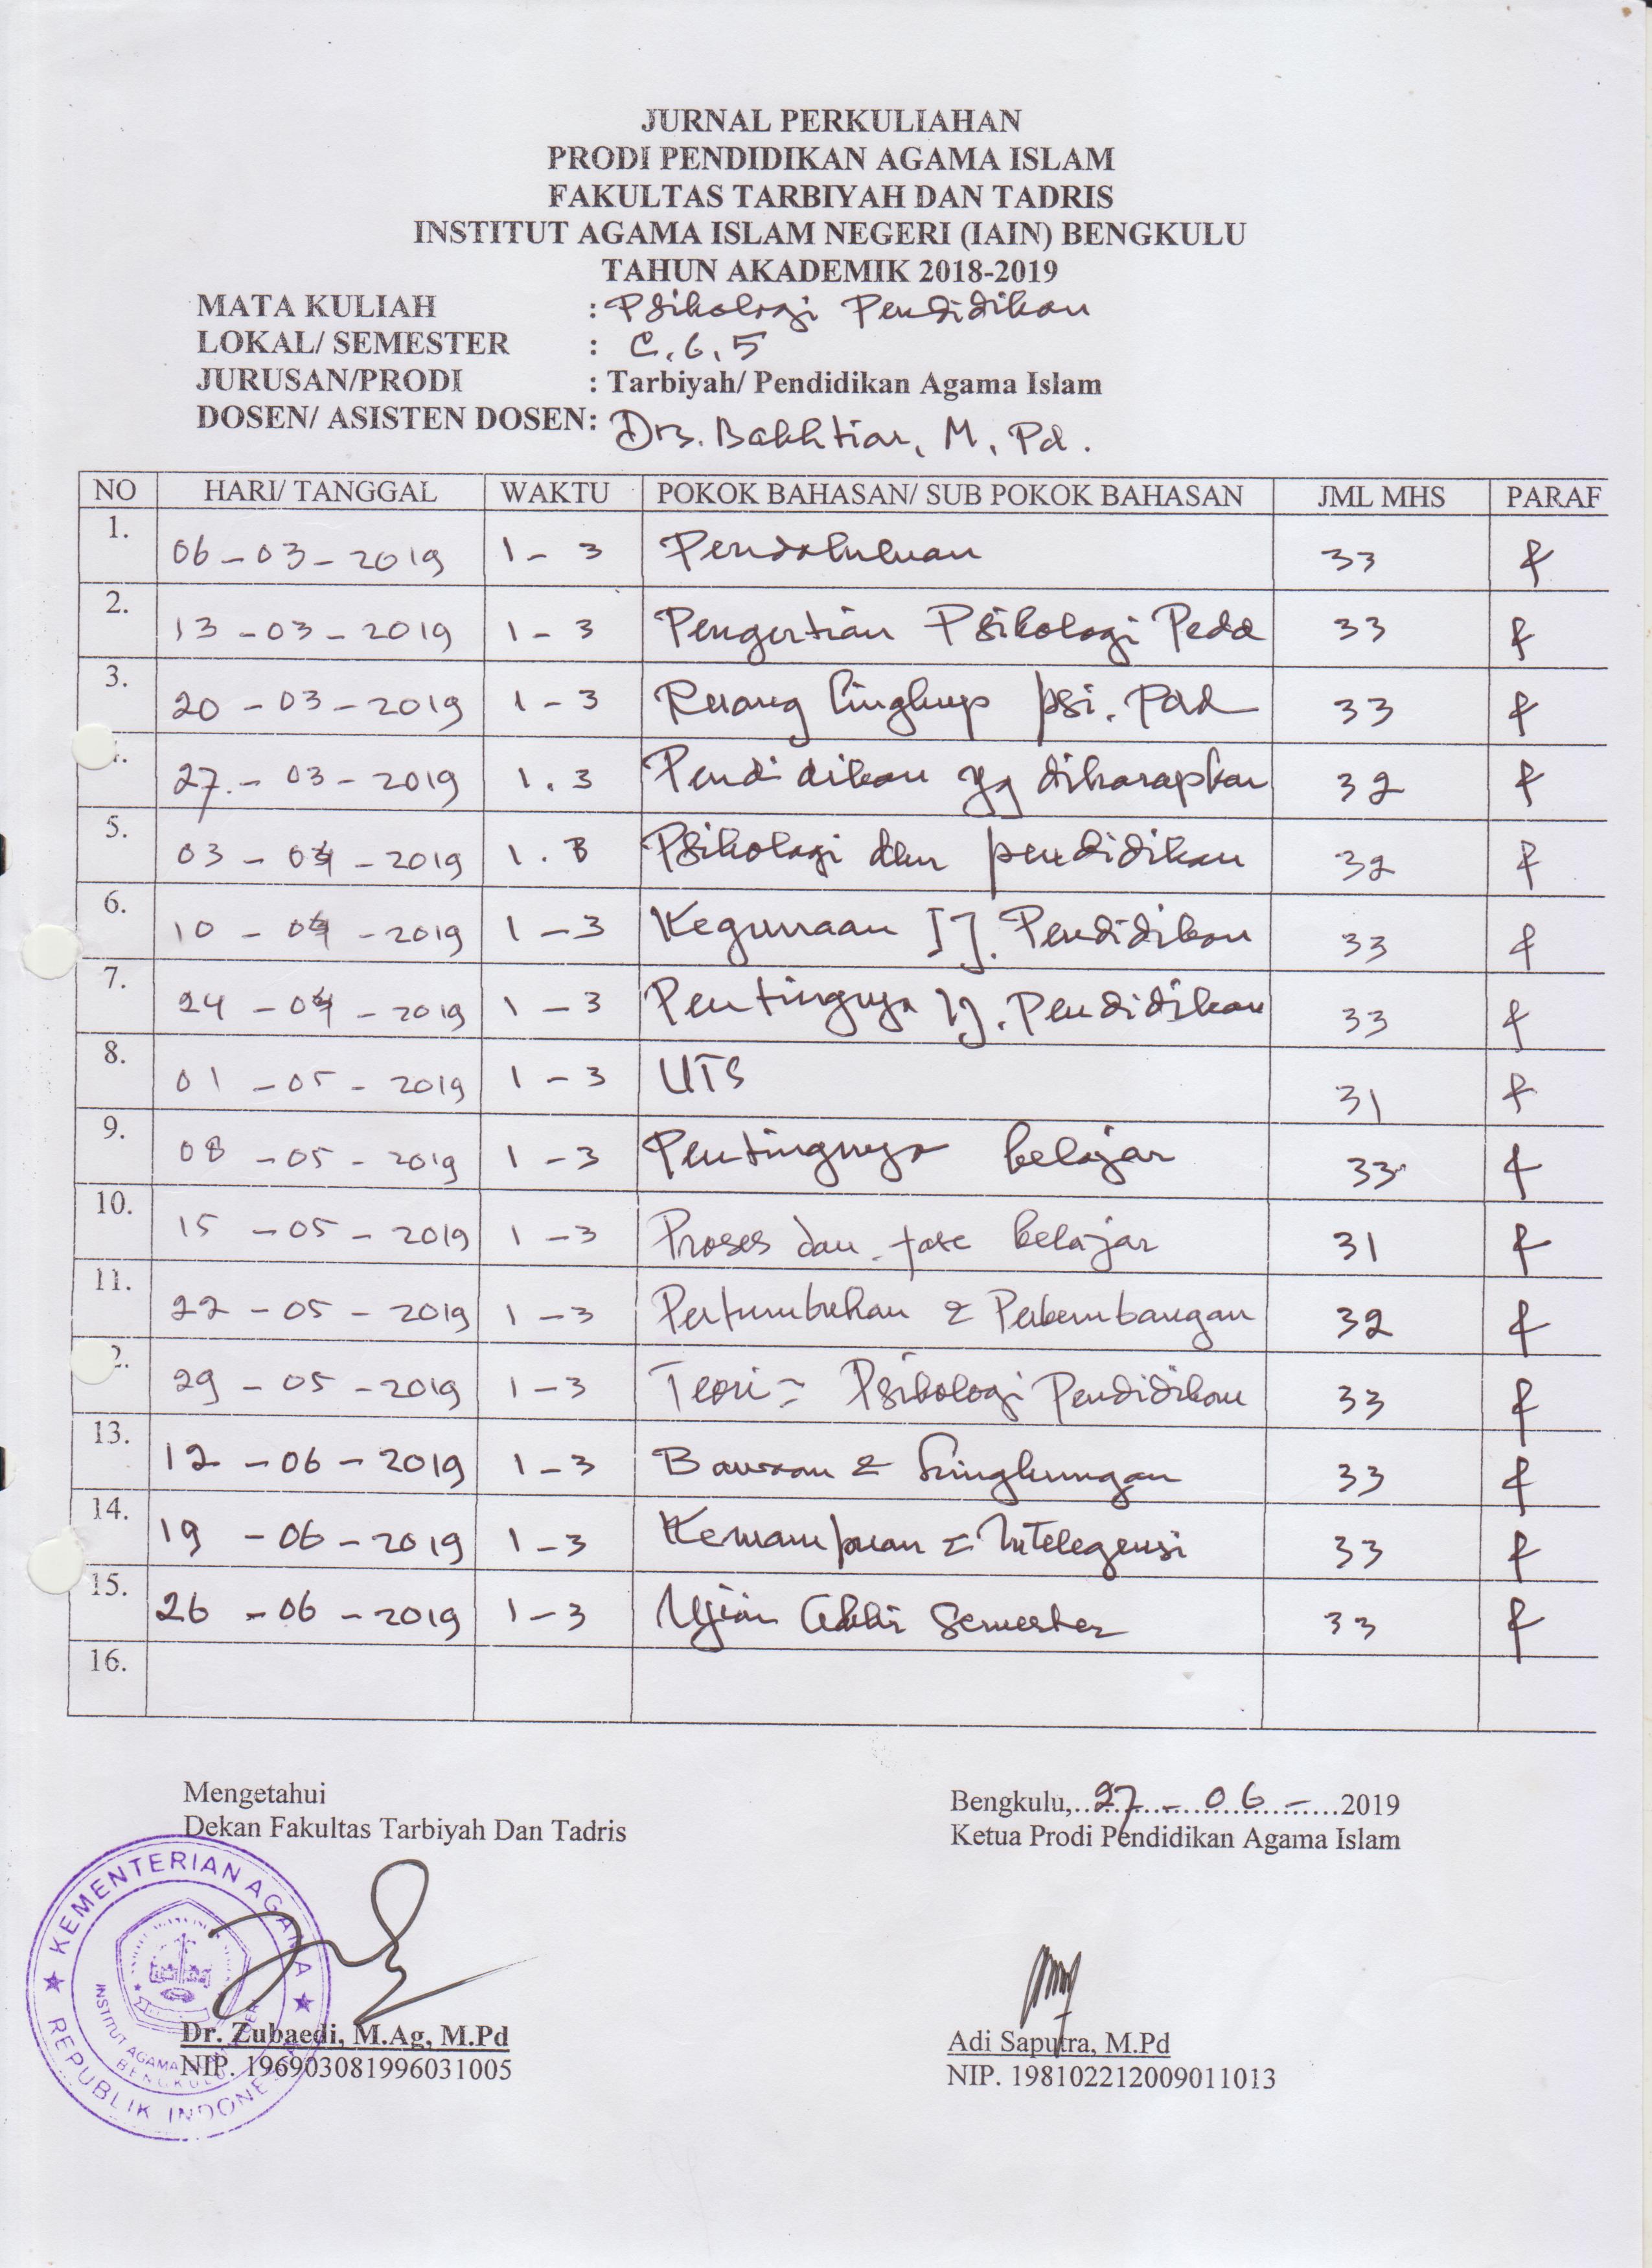 JURNAL PERKULIAHAN
PRODI PENDIDIKAN AGAMA ISLAM
FAKULTAS TARBIYAH DAN TADRIS
INSTITUT AGAMA ISLAM NEGERI (IAIN) BENGKULU
TAHUN AKADEMIK 2018-2019
MATA KULIAH : Psikologi Pendidikan
LOKAL/ SEMESTER : C.6.5
JURUSAN/PRODI : Tarbiyah/ Pendidikan Agama Islam
DOSEN/ ASISTEN DOSEN: Drs. Bakhtiar, M, Pd.
NO HARI/ TANGGAL WAKTU POKOK BAHASAN/ SUB POKOK BAHASAN JML MHS PARAF
1. 06-03-2019 1-3 Pendahuluan 33
2. 13-03-2019 1-3 Pengertian Psikologi 33
3. 20-03-2019 1-3 Ruang lingkup psi. 33
27.-03-2019 1.3 Pendidikan yg diharapkan 32
5. 03-04-2019 1.3 Psikologi dlm pendidikan 32
6. 10-04-2019 1-3 Kegunaan Pendidikan 33
7. 24-04-2019 1-3 Pentingnya Pendidikan 33
8. 01-05-2019 1-3 UTS 31
9. 08-05-2019 1-3 Pentingnya belajar 33
10. 15-05-2019 1-3 Proses dan fase belajar 31
11. 22-05-2019 1-3 Pertumbuhan & Perkembangan 32
2. 29-05-2019 1-3 Teori= Psikologi Pendidikan 33
13. 12-06-2019 1-3 Bawaan & Lingkungan 33
14. 19-06-2019 1-3 Kemampuan & Intelegensi 33
15. 26-06-2019 1-3 Ujian Akhir Semester 33
16.
Mengetahui
Dekan Fakultas Tarbiyah Dan Tadris
Bengkulu, 27-06-2019
Ketua Prodi Pendidikan Agama Islam
KEMENTERIAN AGAMA
REPUBLIK INDONESIA
INSTITUT AGAMA
BENGKULU
Dr. Zubaedi, M.Ag, M.Pd
NIP. 196903081996031005
Adi Saputra, M.Pd
NIP. 198102212009011013